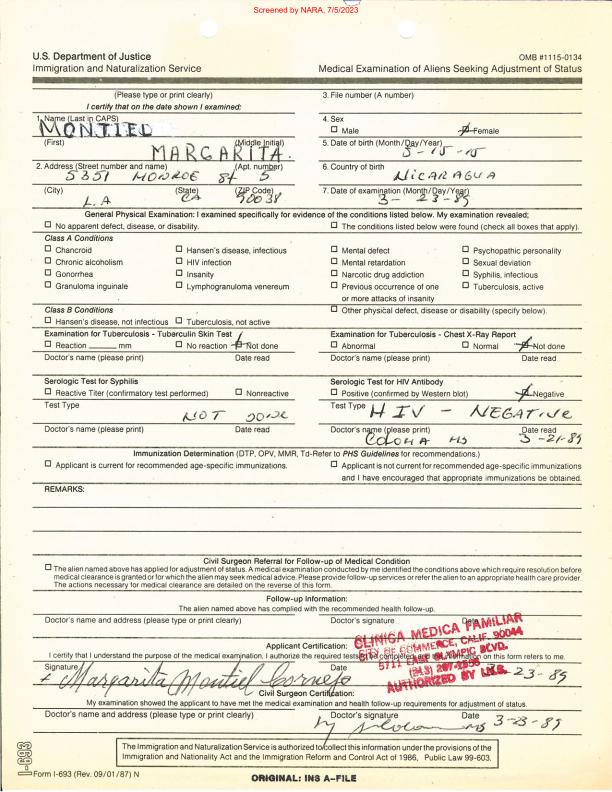 Screened by NARA, 7/5/2023
U.S. Department of Justice
Immigration and Naturalization Service
OMB #1115-0134
Medical Examination of Aliens Seeking Adjustment of Status
(Please type or print clearly)
I certify that on the date shown I examined:
3. File number (A number)
1. Name (Last in CAPS)
MONTIEL
4. Sex
☐ Male ☒ Female
(First) (Middle Initial)
MARGARITA.
5. Date of birth (Month/Day/Year)
2. Address (Street number and name) (Apt. number)
5351 MONROE St 5
6. Country of birth
NICARAGUA
(City) (State) (ZIP Code)
L.A CA 90038
7. Date of examination (Month/Day/Year)
3-23-89
General Physical Examination: I examined specifically for evidence of the conditions listed below. My examination revealed;
☐ No apparent defect, disease, or disability.
☐ The conditions listed below were found (check all boxes that apply).
Class A Conditions
☐ Chancroid ☐ Hansen's disease, infectious ☐ Mental defect ☐ Psychopathic personality
☐ Chronic alcoholism ☐ HIV infection ☐ Mental retardation ☐ Sexual deviation
☐ Gonorrhea ☐ Insanity ☐ Narcotic drug addiction ☐ Syphilis, infectious
☐ Granuloma inguinale ☐ Lymphogranuloma venereum ☐ Previous occurrence of one ☐ Tuberculosis, active
or more attacks of insanity
Class B Conditions
☐ Other physical defect, disease or disability (specify below).
☐ Hansen's disease, not infectious ☐ Tuberculosis, not active
Examination for Tuberculosis - Tuberculin Skin Test
☐ Reaction ______ mm ☐ No reaction ☒ Not done
Doctor's name (please print) Date read
Examination for Tuberculosis - Chest X-Ray Report
☐ Abnormal ☐ Normal ☒ Not done
Doctor's name (please print) Date read
Serologic Test for Syphilis
☐ Reactive Titer (confirmatory test performed) ☐ Nonreactive
Test Type
NOT DONE
Doctor's name (please print) Date read
Serologic Test for HIV Antibody
☐ Positive (confirmed by Western blot) ☒ Negative
Test Type HIV - NEGATIVE
Doctor's name (please print) Date read
3-21-89
Immunization Determination (DTP, OPV, MMR, Td-Refer to PHS Guidelines for recommendations.)
☐ Applicant is current for recommended age-specific immunizations.
☐ Applicant is not current for recommended age-specific immunizations
and I have encouraged that appropriate immunizations be obtained.
REMARKS:
Civil Surgeon Referral for Follow-up of Medical Condition
☐ The alien named above has applied for adjustment of status. A medical examination conducted by me identified the conditions above which require resolution before
medical clearance is granted or for which the alien may seek medical advice. Please provide follow-up services or refer the alien to an appropriate health care provider.
The actions necessary for medical clearance are detailed on the reverse of this form.
Follow-up Information:
The alien named above has complied with the recommended health follow-up.
Doctor's name and address (please type or print clearly) Doctor's signature Date
CLINICA MEDICA FAMILIAR
CITY OF COMMERCE, CALIF. 90044
5711 EAST OLYMPIC BLVD.
AUTHORIZED BY I.N.S.
Applicant Certification:
I certify that I understand the purpose of the medical examination, I authorize the required tests to be completed and the information on this form refers to me.
Signature Date
Margarita Montiel Cornejo 3-23-89
Civil Surgeon Certification:
My examination showed the applicant to have met the medical examination and health follow-up requirements for adjustment of status.
Doctor's name and address (please type or print clearly) Doctor's signature Date
3-23-89
The Immigration and Naturalization Service is authorized to collect this information under the provisions of the
Immigration and Nationality Act and the Immigration Reform and Control Act of 1986, Public Law 99-603.
I-693
Form I-693 (Rev. 09/01/87) N
ORIGINAL: INS A-FILE